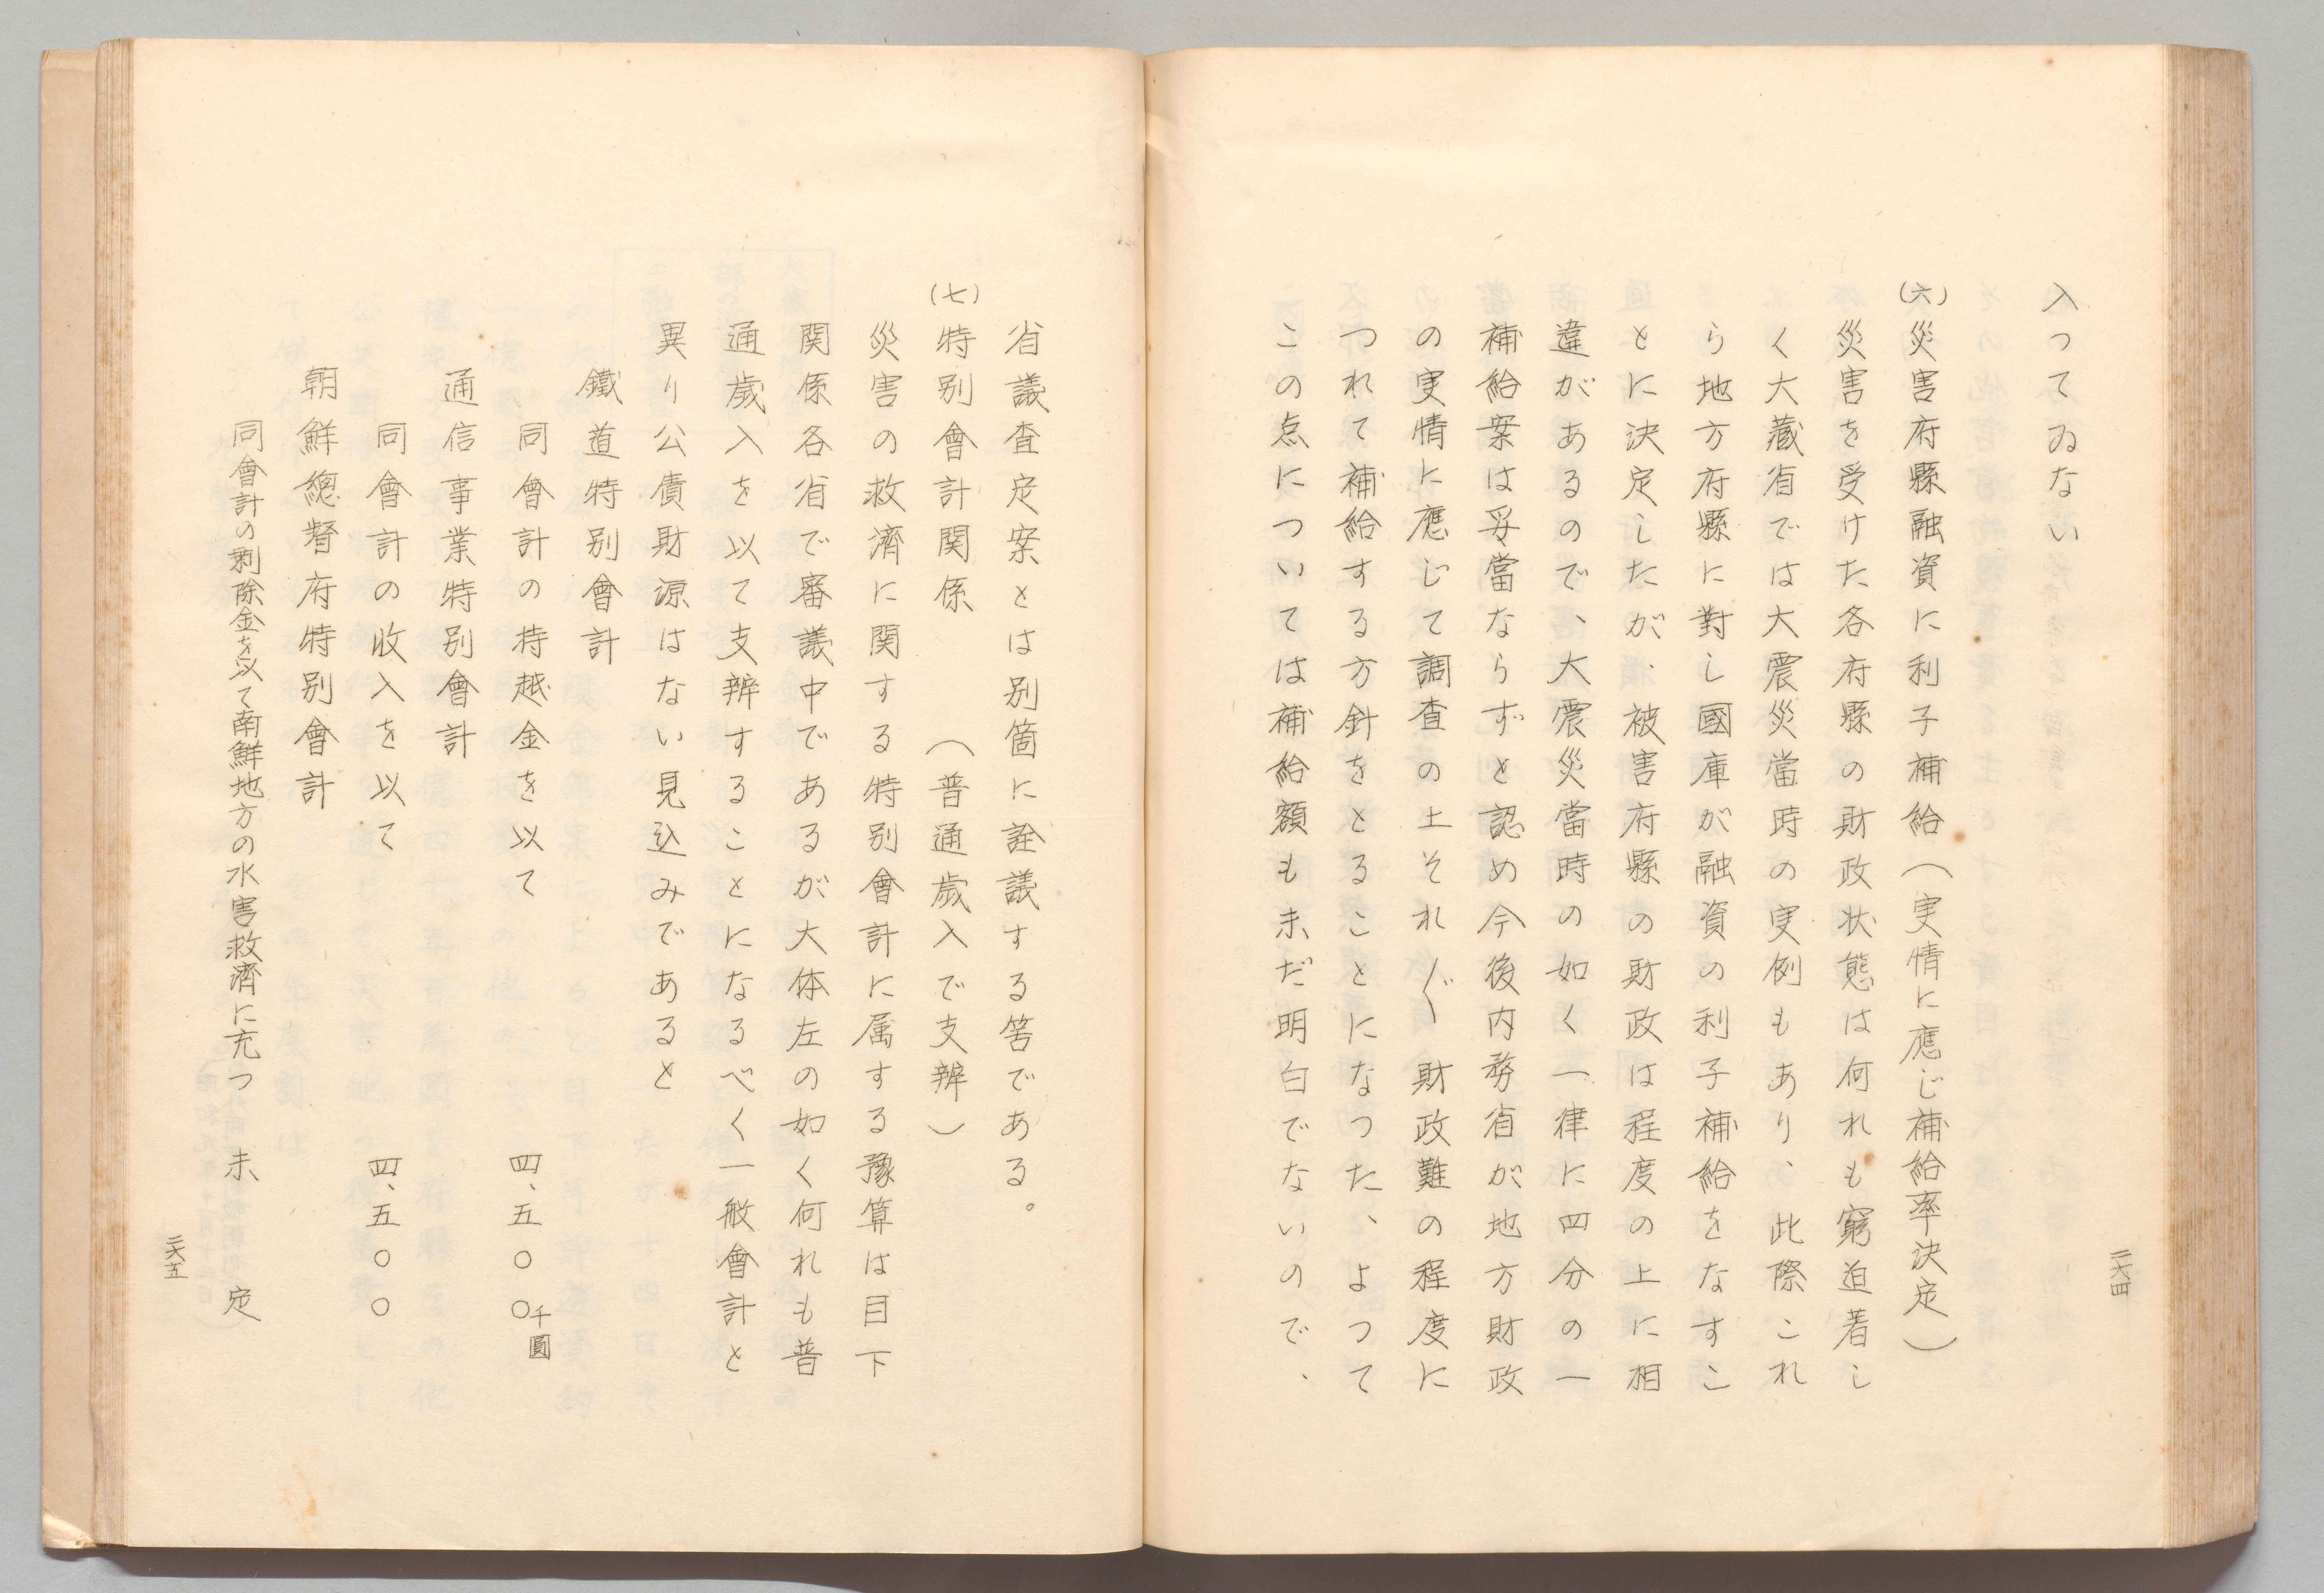 入つてゐない
(六)災害府縣融資に利子補給(実情に應じ補給率決定)
災害を受けた各府縣の財政状態は何れも窮迫着し
く大藏省では大震災當時の実例もあり、此際これ
ら地方府縣に對し國庫が融資の利子補給をなすこ
とに決定したが、被害府縣の財政は程度の上に相
違があるので、大震災當時の如く一律に四分の一
補給案は妥當ならずと認め今後内務省が地方財政
の実情に應じて調査の上それ〲財政難の程度に
つれて補給する方針をとることになつた、よつて
この点については補給額も未だ明白でないので、
二六四
省議査定案とは別箇に詮議する筈である。
(七)特別會計関係 (普通歳入で支辨)
災害の救濟に関する特別會計に属する豫算は目下
関係各省で審議中であるが大体左の如く何れも普
通歳入を以て支辨することになるべく一般會計と
異り公債財源はない見込みであると
鐵道特別會計
同會計の持越金を以て 四、五〇〇千圓
通信事業特別會計
同會計の收入を以て 四、五〇〇
朝鮮總督府特別會計
同會計の剰除金を以て南鮮地方の水害救濟に充つ 未定
二六五